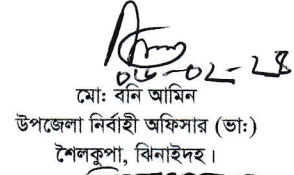 ০৬-০২-২৪
মো: বনি আমিন
উপজেলা নির্বাহী অফিসার (ভা:)
শৈলকুপা, ঝিনাইদহ।